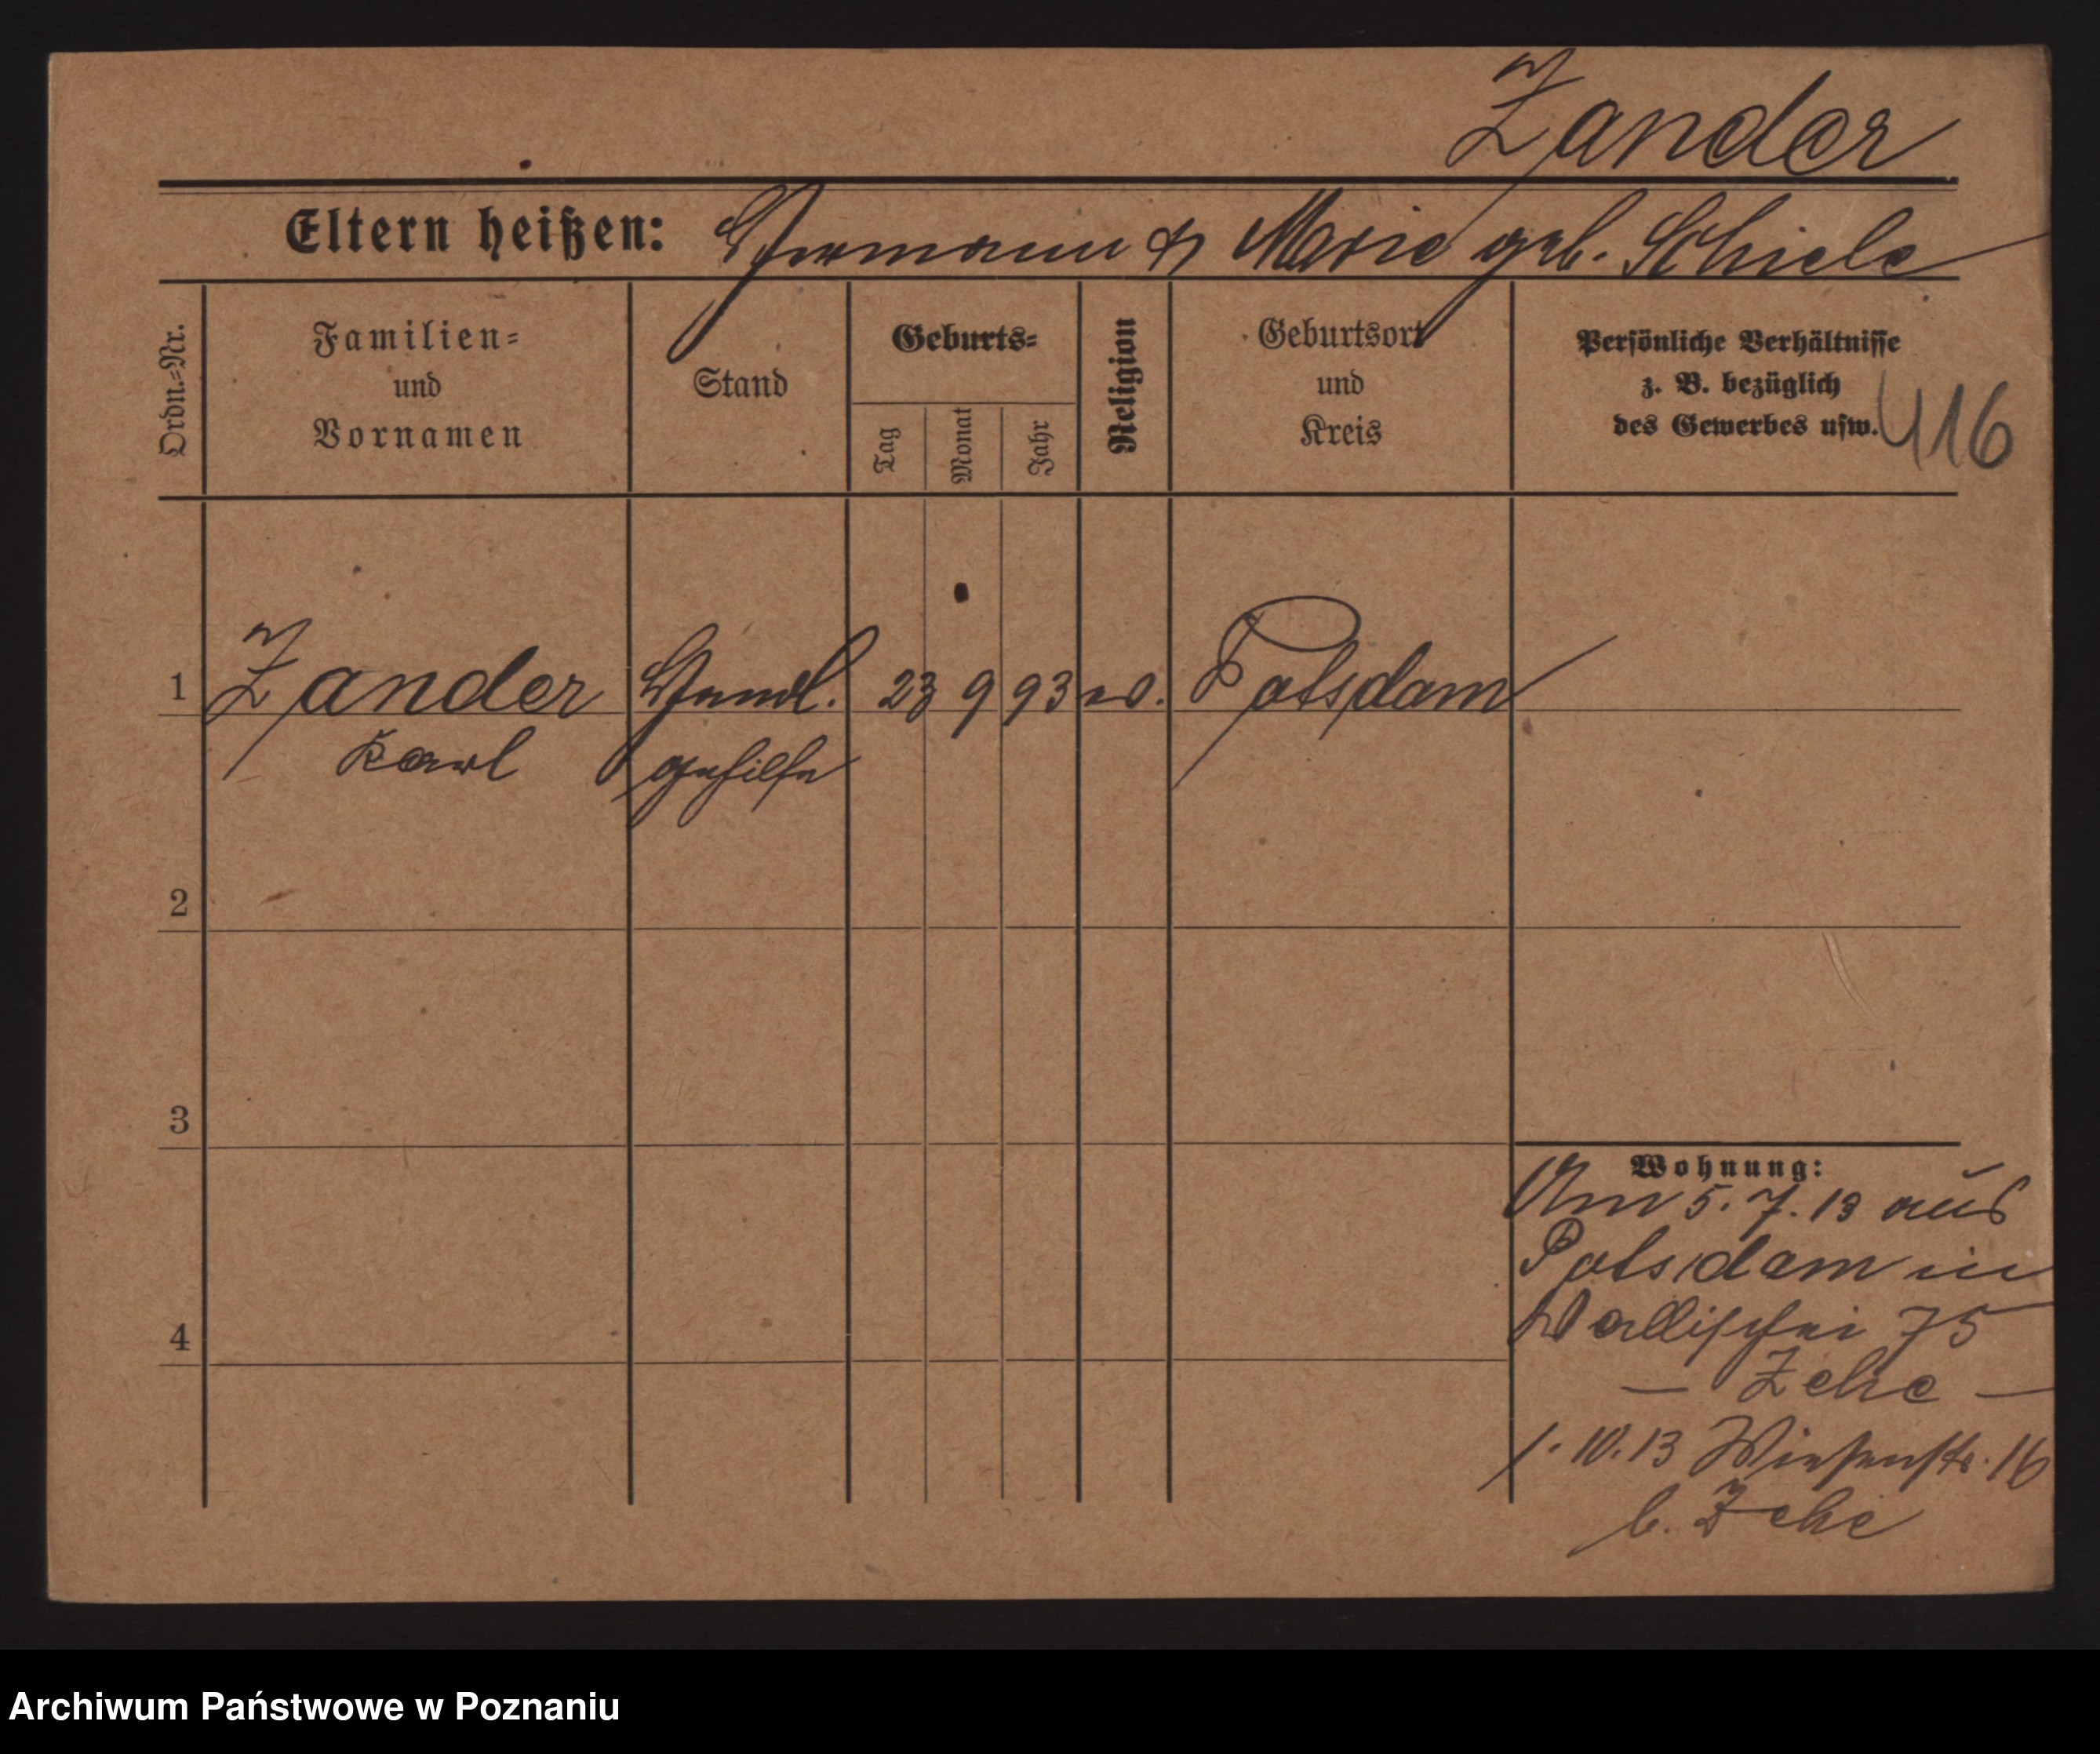 Zander
Eltern heißen: Hermann & Marie geb. Schiele
Ordn.-Nr.
Familien-
und
Vornamen
Stand
Geburts-
Tag
Monat
Jahr
Religion
Geburtsort
und
Kreis
Persönliche Verhältnisse
z. B. bezüglich
des Gewerbes usw.
416
1 Zander Handl. 23 9 93 ev. Potsdam
Karl gehilfe
2
3
4
Wohnung:
Am 5. 7. 13 aus
Potsdam in
Wallischei 75
— Zehe —
1. 10. 13 Wiesenstr. 16
b. Zehe
Archiwum Państwowe w Poznaniu